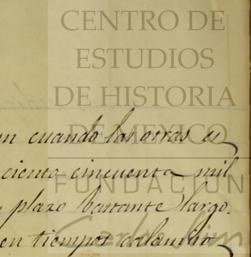 CENTRO DE
ESTUDIOS
DE HISTORIA
DE MEXICO
cuando las otras
ciento cincuenta mil
FUNDACIÓN
plazo bastante largo.
en tiempos